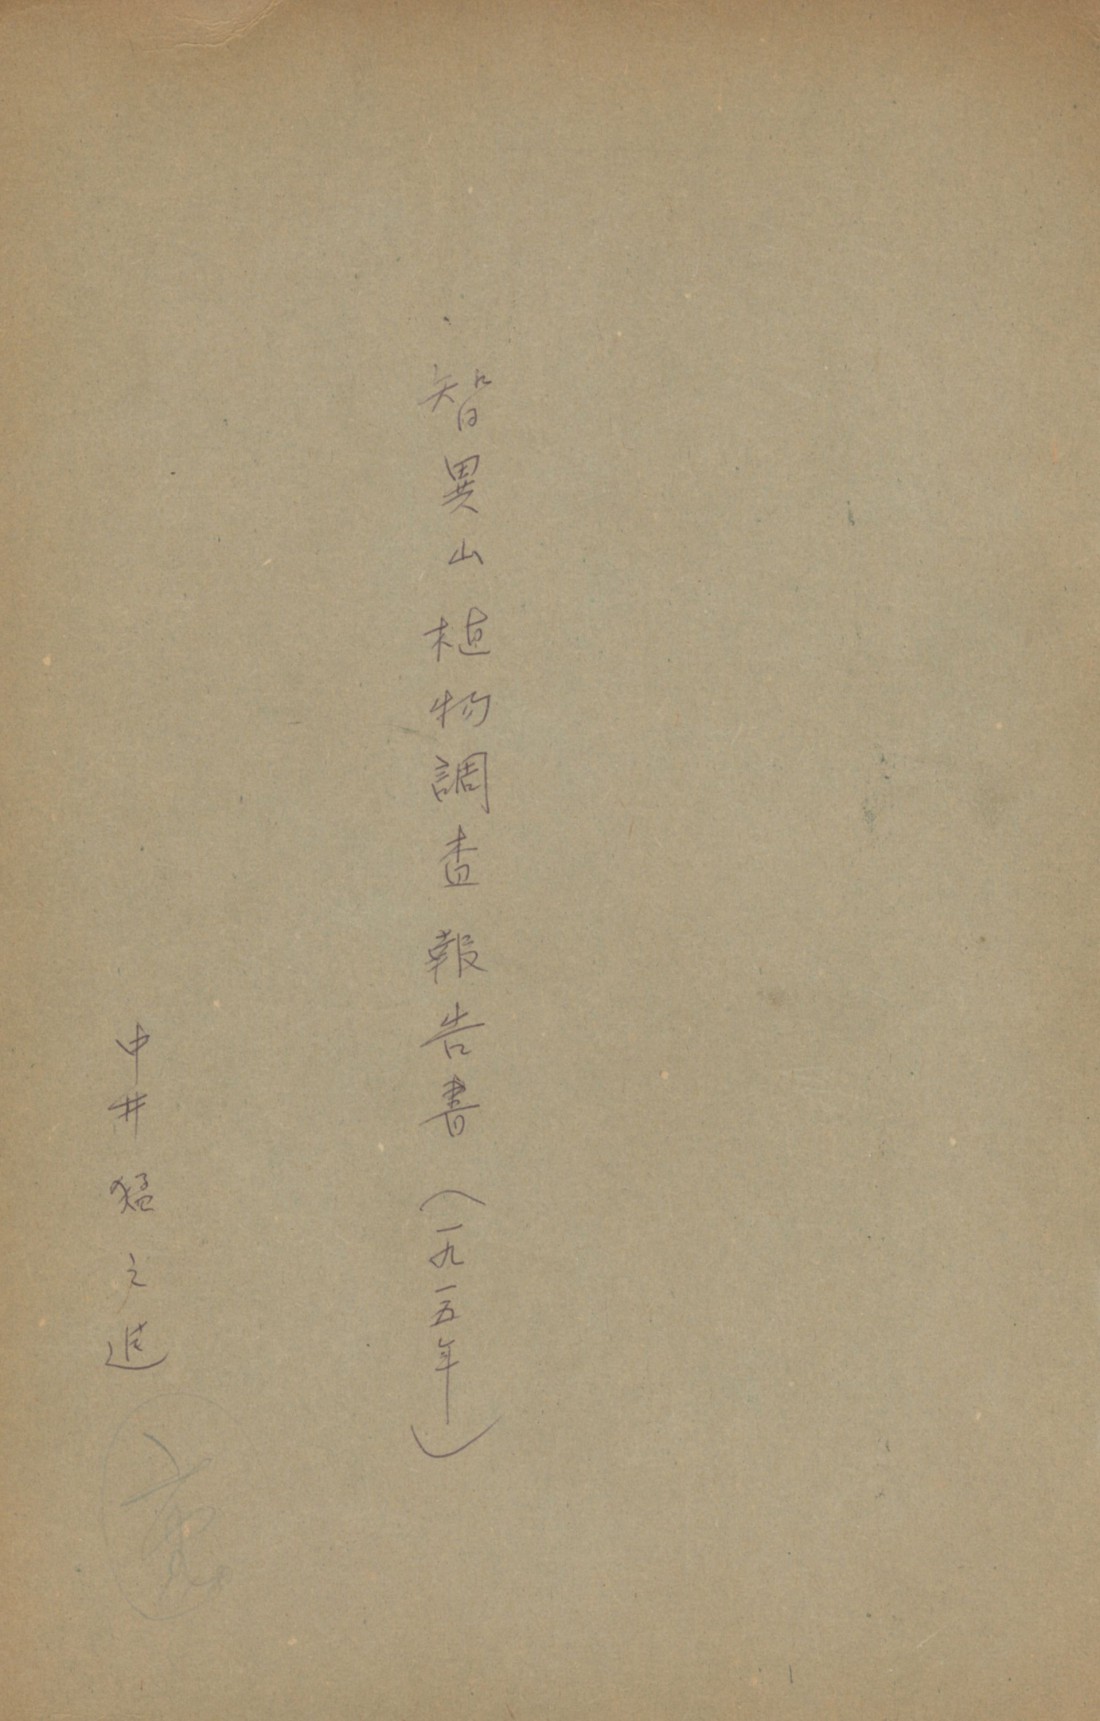 智異山植物調査報告書（一九一五年）
中井猛之進